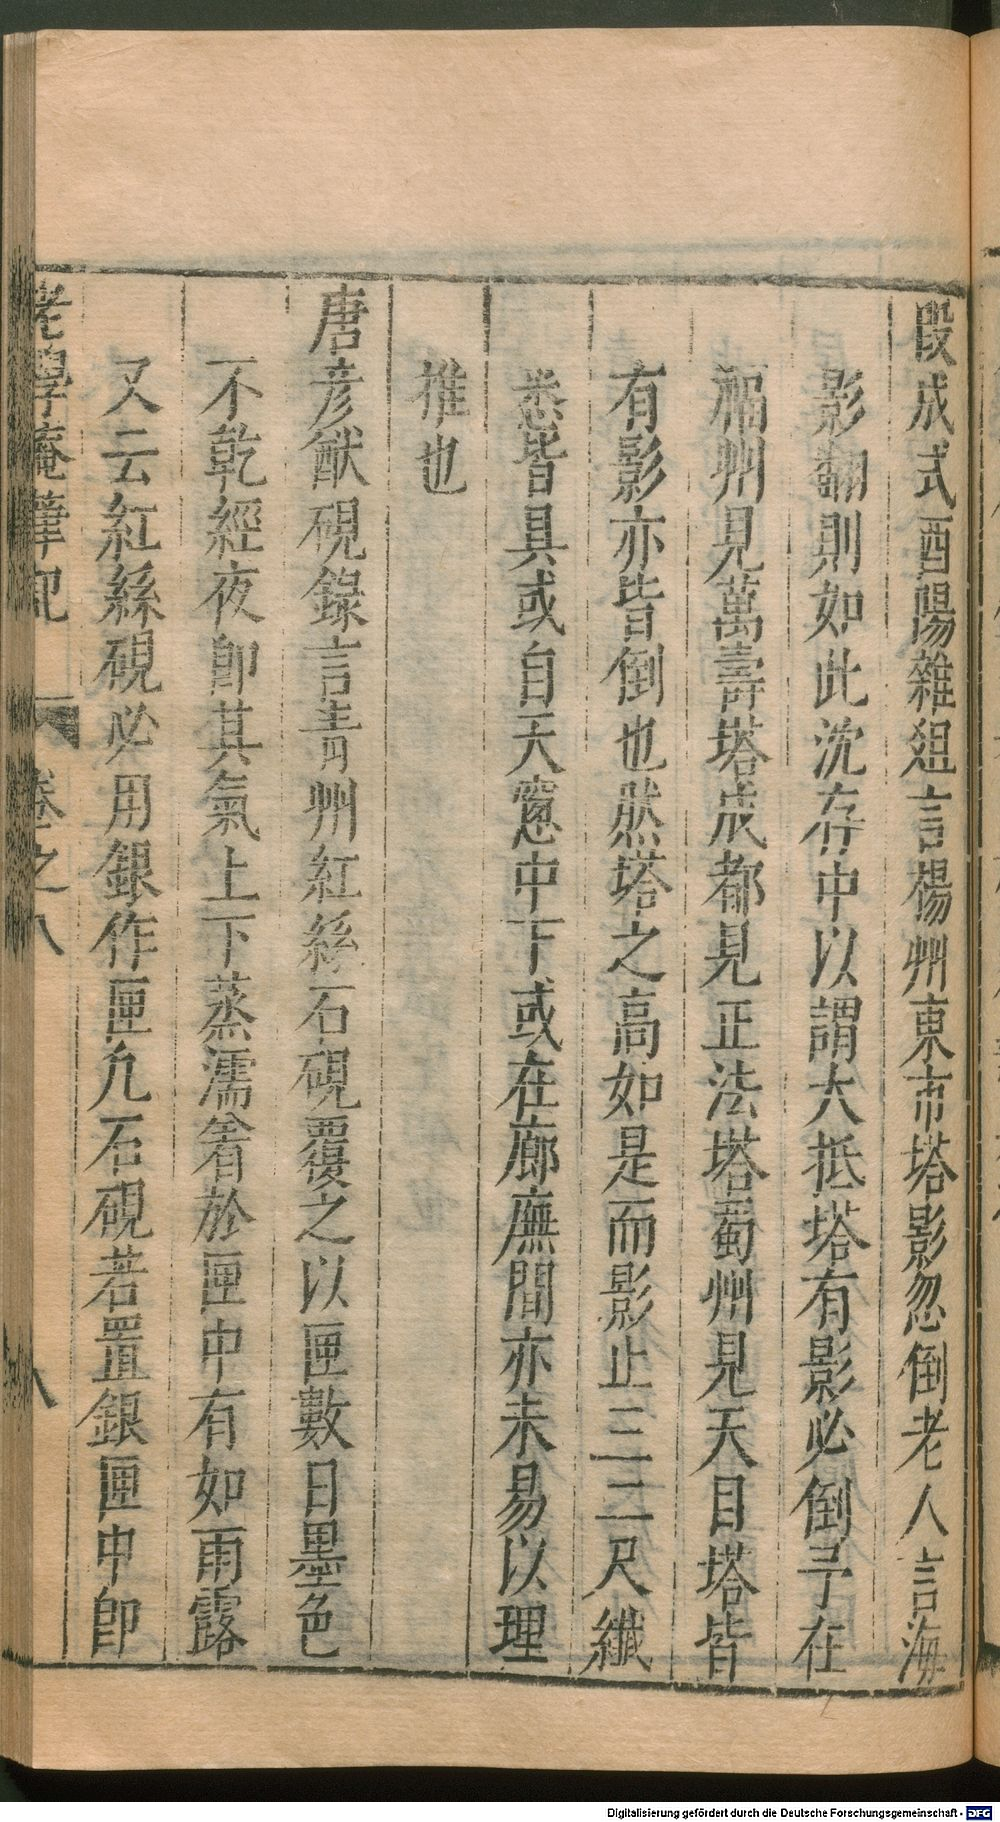 段成式酉陽雜俎言楊州東市塔影忽倒老人言海
影翻則如此沈存中以謂大抵塔有影必倒予在
福州見萬壽塔成都見正法塔蜀州見天目塔皆
有影亦皆倒也然塔之高如是而影止三二尺纖
悉皆具或自天窻中下或在廊廡間亦未易以理
推也
唐彦猷硯錄言青州紅絲石硯覆之以匣數日墨色
不乾經夜卽其氣上下蒸濡着於匣中有如雨露
又云紅絲硯必用銀作匣凡石硯若置銀匣中卽
老學庵筆記 卷之八 八
Digitalisierung gefördert durch die Deutsche Forschungsgemeinschaft - DFG